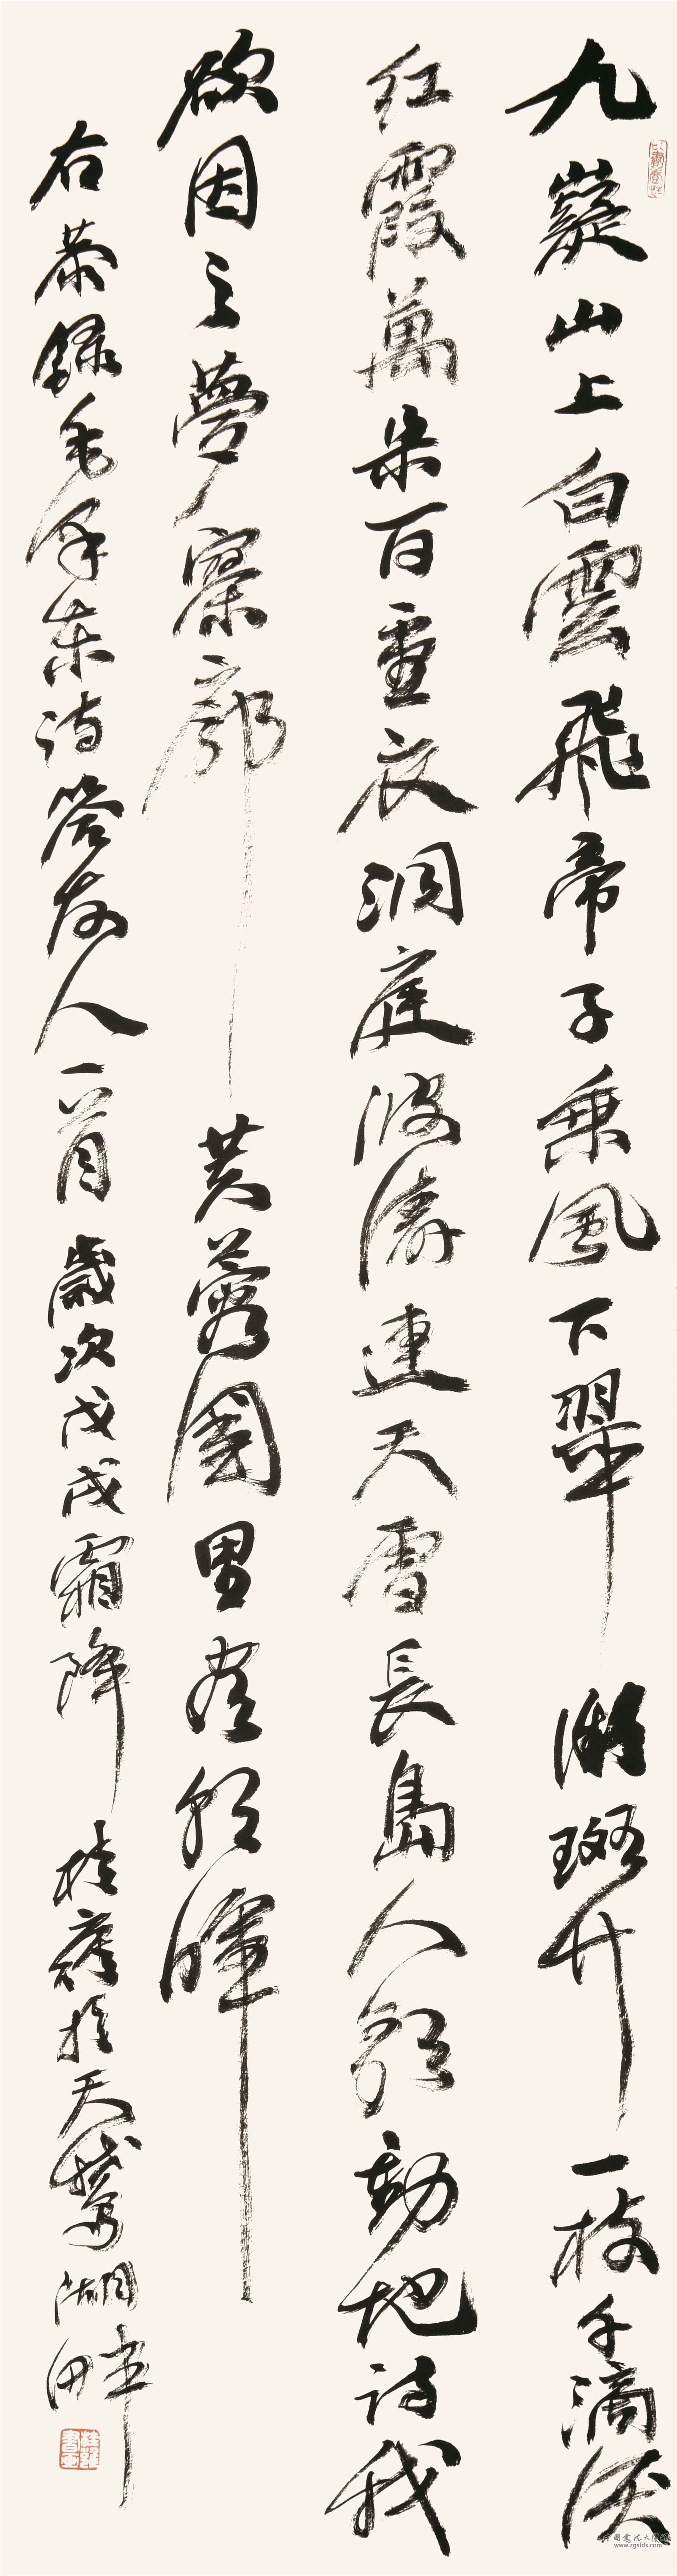 九嶷山上白雲飛帝子乘風下翠微斑竹一枝千滴淚
红霞萬朵百重衣洞庭波濤連天雪長島人歌動地詩我
欲因之夢寥廓芙蓉國里盡朝暉
右恭録毛泽东诗答友人一首歲次戊戌霜降桂雍於天鵝湖畔
www.zgsfds.com